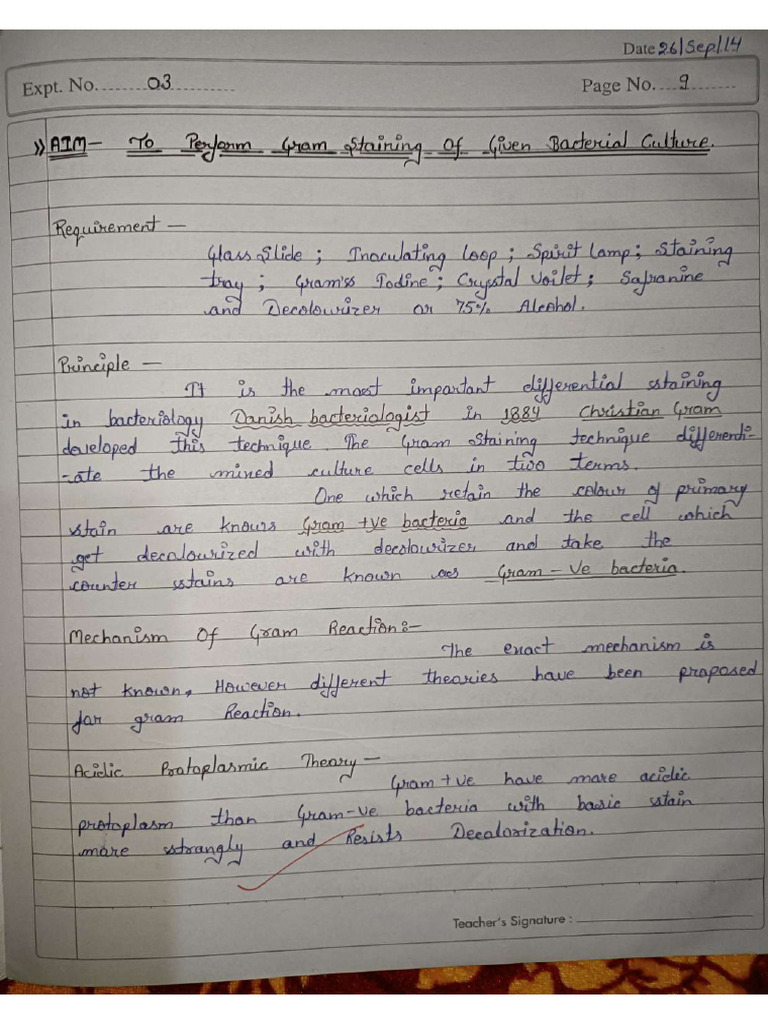 Date 26/Sep/14
Expt. No. 03
Page No. 9
» AIM- To Perform Gram Staining Of Given Bacterial Culture.
Requirement -
Glass Slide ; Inoculating loop ; Spirit Lamp ; Staining
tray ; Gram'ss Iodine ; Crystal Voilet ; Safranine
and Decolourizer or 75% Alcohol.
Principle -
It is the most important differential staining
in bacteriology Danish bacteriologist in 1884 Christian Gram
developed this technique. The Gram Staining technique differenti-
-ate the mined culture cells in two terms.
One which retain the colour of primary
stain are knows Gram +ve bacteria and the cell which
get decolourized with decolourizer and take the
counter stains are known as Gram -Ve bacteria.
Mechanism Of Gram Reaction:-
The exact mechanism is
not known, However different theories have been proposed
for gram Reaction.
Acidic Protoplasmic Theory -
Gram +ve have more acidic
protoplasm than Gram-ve bacteria with basic stain
more strongly and Resists Decolorization.
Teacher's Signature :